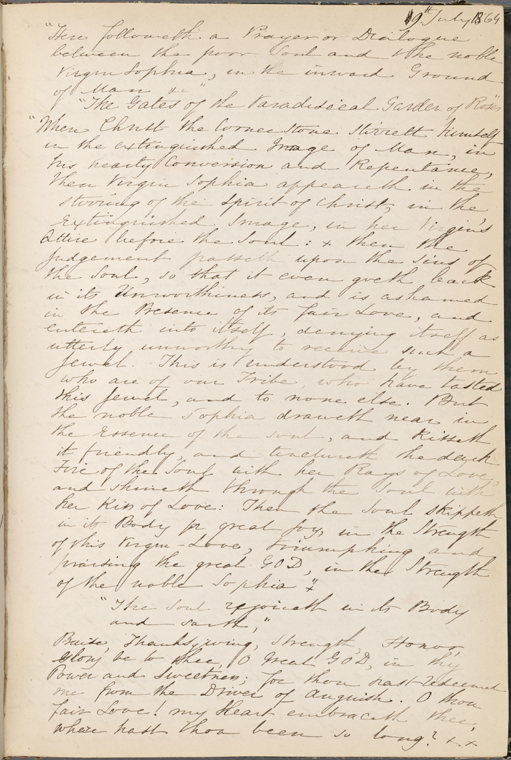 19th July 1864
"Here followeth a Prayer or Dialogue
between the poor Soul and the noble
Virgin Sophia, in the inward Ground
of Man &c"
"The Gates of the Paradisical Garden of Roses"
"When Christ the Corner Stone stirreth himself
in the extinguished Image of Man, in
his hearty Conversion and Repentance,
then Virgin Sophia appeareth in the
stirring of the Spirit of Christ, in the
Extinguished Image, in her Virgins
Attire before the Soul: + then the
Judgement passeth upon the Sins of
the Soul, so that it even goeth back
in its Unworthiness, and is ashamed
in the Presence of its fair Love, and
entereth into itself, denying itself as
utterly unworthy to receive such a
Jewel. This is understood by them
who are of our Tribe, who have tasted
this Jewel, and to none else. But
the noble Sophia draweth near in
the Essence of the Soul, and kisseth
it friendly, and tinctureth the dark
Fire of the Soul with her Rays of Love,
and shineth through the Soul with
her Kiss of Love: Then the Soul skippeth
in its Body for great Joy, in the Strength
of this Virgin-Love, triumphing and
praising the great GOD, in the Strength
of the noble Sophia" +
"The Soul rejoiceth in its Body
and saith,"
Praise, Thanksgiving, Strength, Honor,
Glory, be to thee, O Great GOD, in thy
Power and Sweetness; for thou hast redeemed
me from the Driver of Anguish. O thou
fair Love! my Heart embraceth thee;
where hast thou been so long? + +